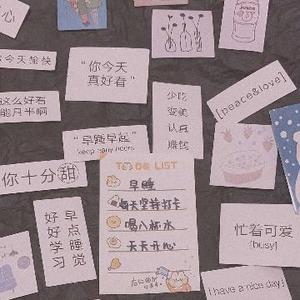 心
今天愉快
"你今天
真好看"
少吃
变瘦
认真
赚钱
[peace&love]
这么好看
"早睡早起"
keep early hours
你十分甜
TO DO LIST
早睡
每天坚持打卡
喝八杯水
天天开心
好早
好点
学睡
习觉
忙着可爱
{busy}
i have a nice day